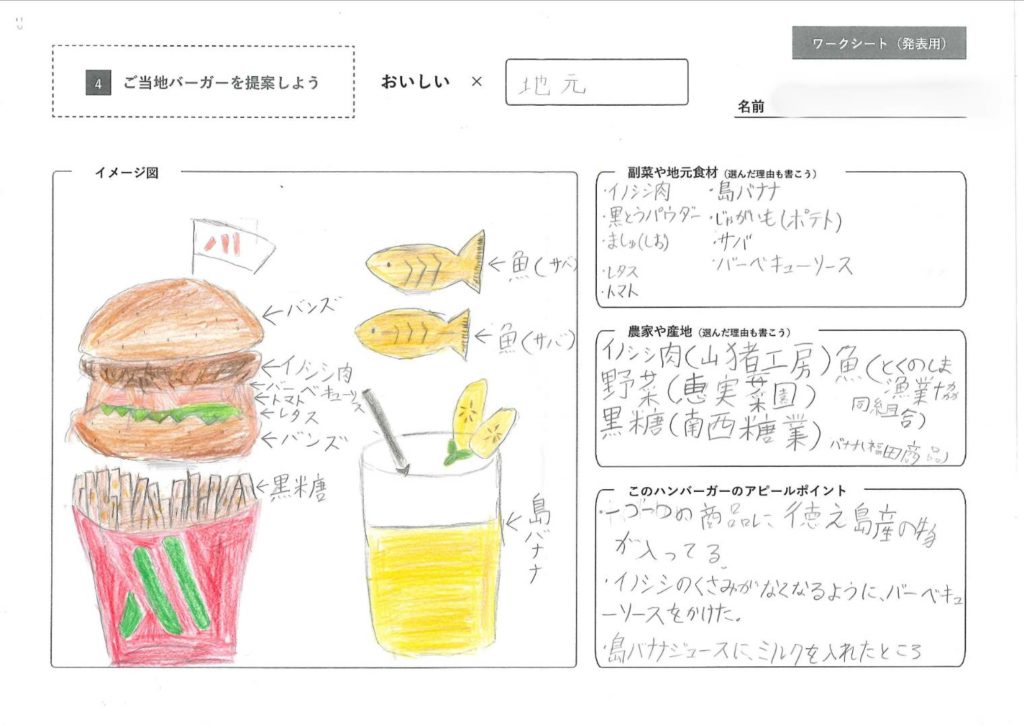 ワークシート（発表用）
4 ご当地バーガーを提案しよう
おいしい × 地元
名前
イメージ図
バンズ
イノシシ肉
バーベキューソース
トマト
レタス
バンズ
黒糖
魚(サバ)
魚(サバ)
島バナナ
副菜や地元食材（選んだ理由も書こう）
・イノシシ肉
・黒とうパウダー
・ましゅ(しお)
・レタス
・トマト
・島バナナ
・じゃがいも(ポテト)
・サバ
・バーベキューソース
農家や産地（選んだ理由も書こう）
イノシシ肉(山猪工房)
野菜(恵実菜園)
黒糖(南西糖業)
魚(とくのしま
漁業協
同組合)
バナナ(福田商品)
このハンバーガーのアピールポイント
・一つ一つの商品に、徳之島産の物
が入ってる
・イノシシのくさみがなくなるように、バーベキュ
ーソースをかけた。
・島バナナジュースに、ミルクを入れたところ